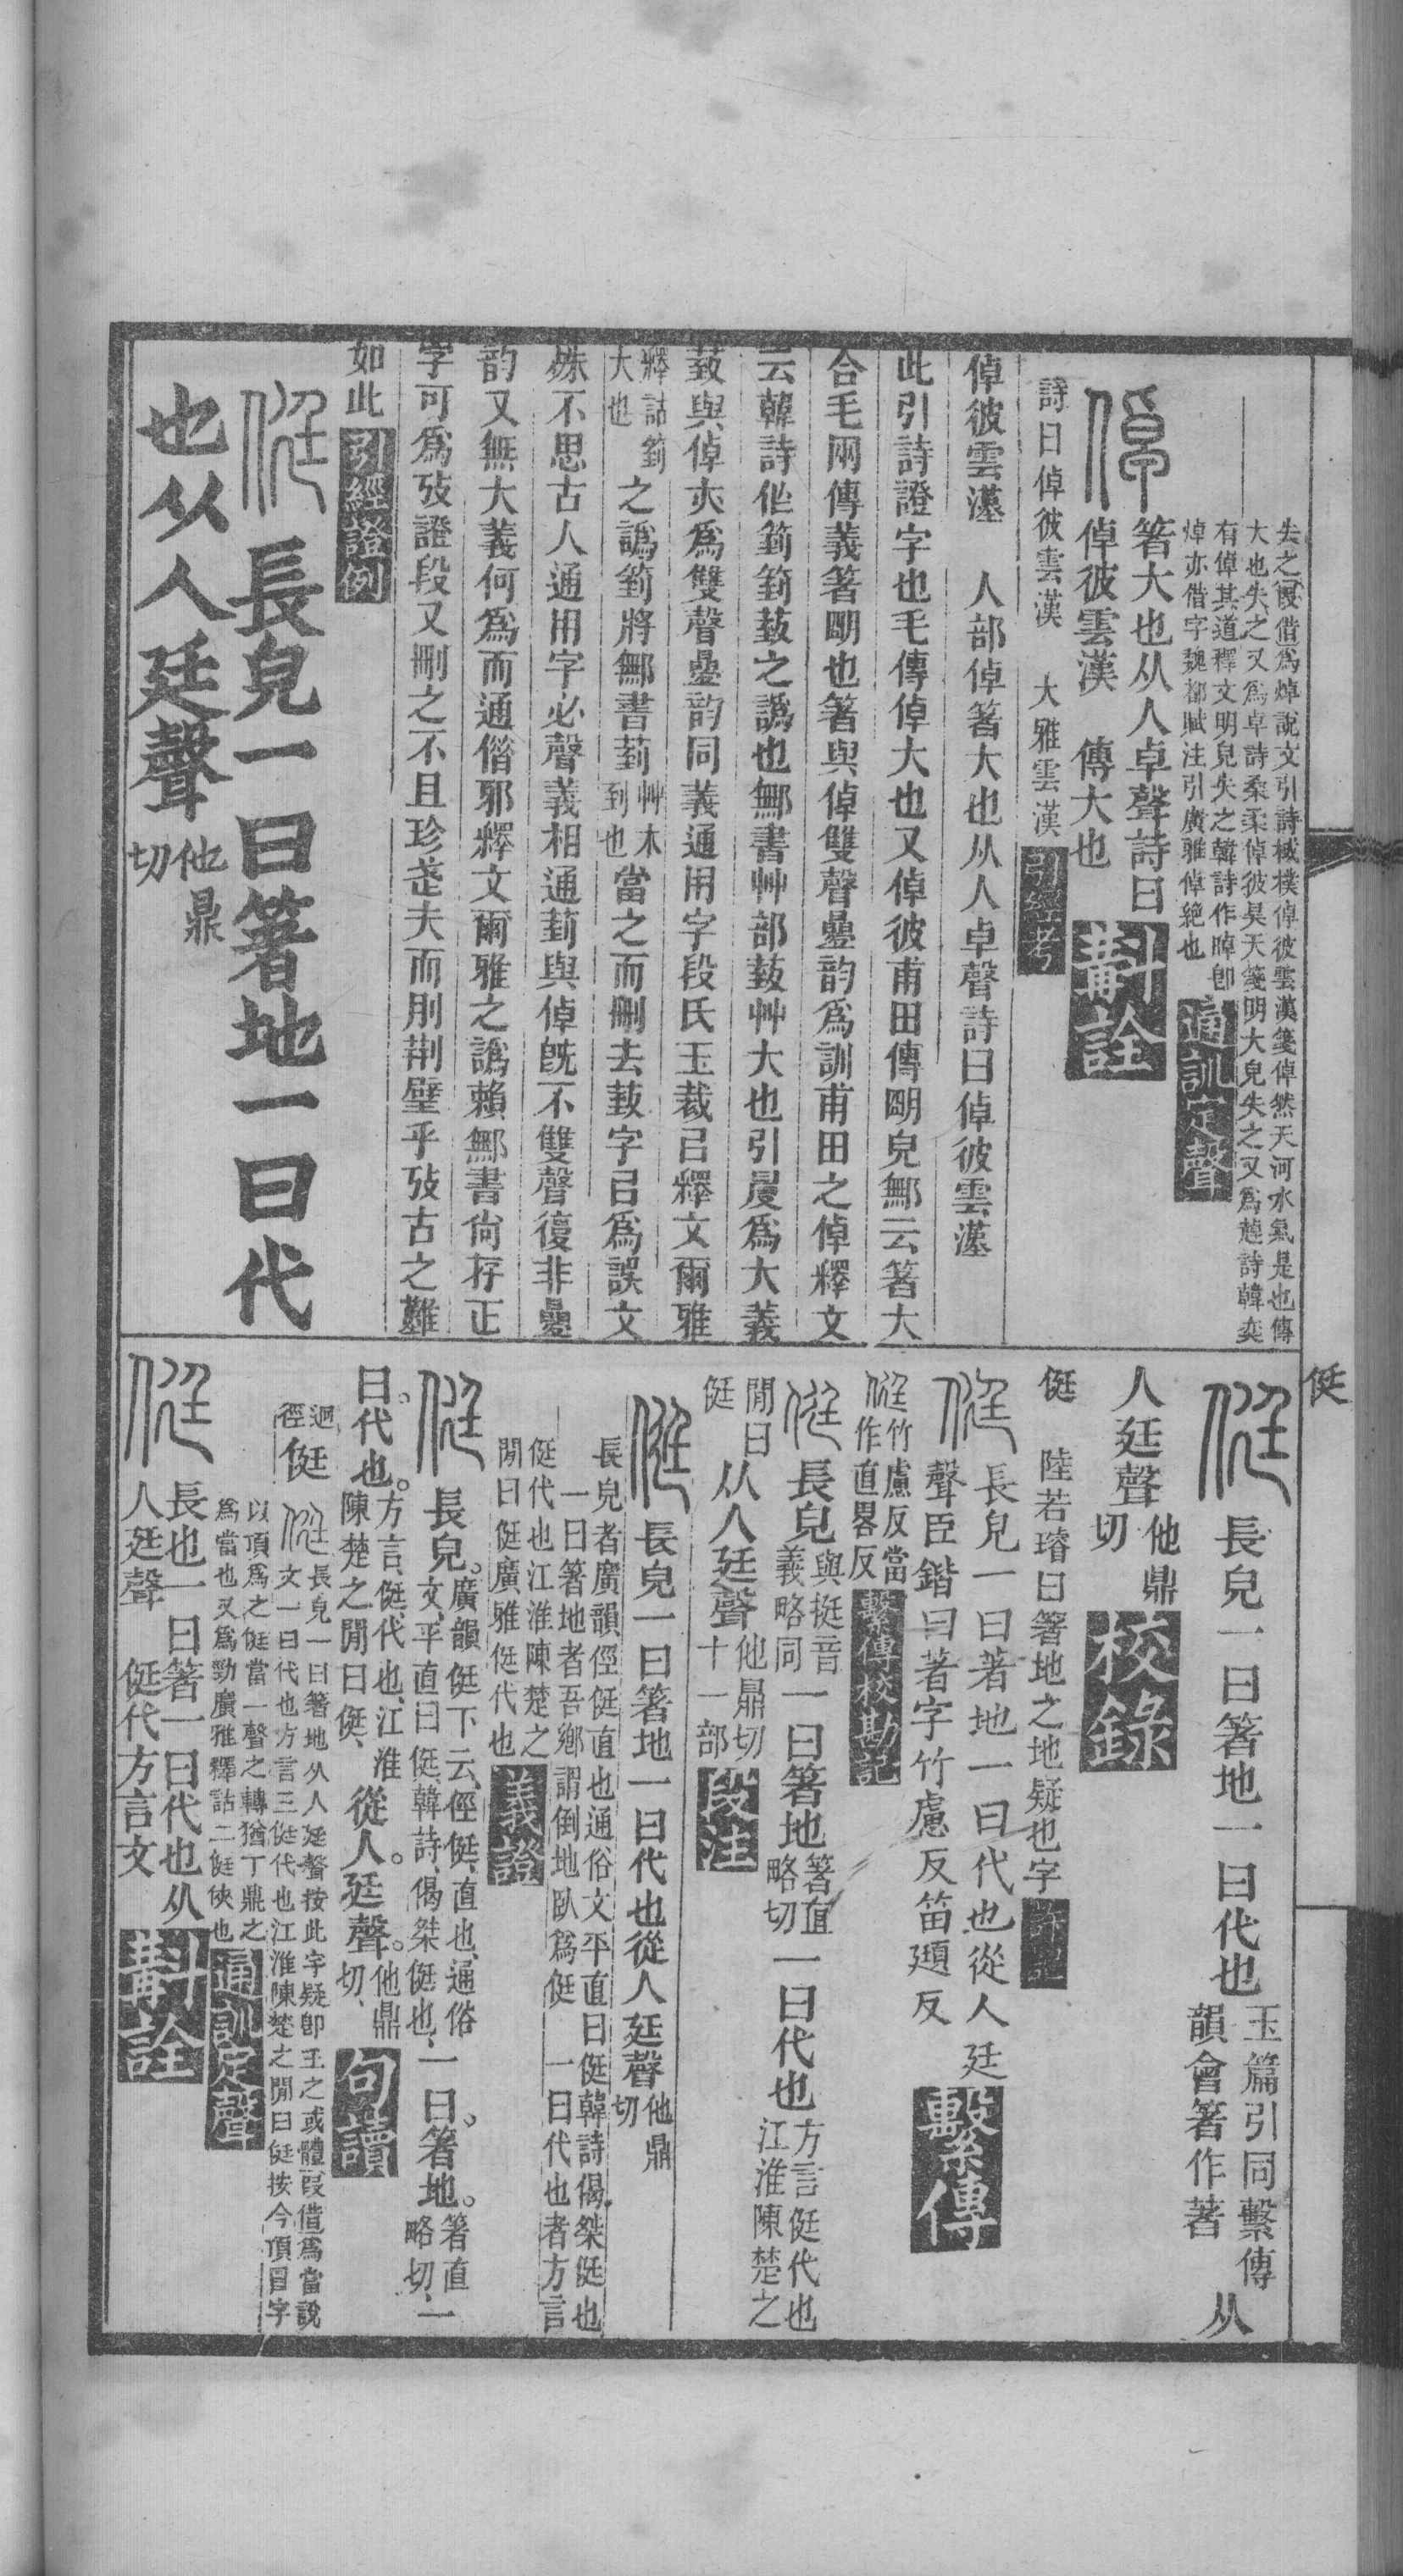 去之叚借爲焯說文引詩棫樸倬彼雲漢箋倬然天河水氣是也傳
大也失之又爲卓詩桑柔倬彼昊天箋明大皃失之又爲趠詩韓奕
有倬其道釋文明皃失之韓詩作晫卽
焯亦借字魏都賦注引廣雅倬絶也
通訓定聲
箸大也从人卓聲詩曰
倬彼雲漢　傳大也
斠詮
詩曰倬彼雲漢　大雅雲漢
引經考
倬彼雲漢　人部倬箸大也从人卓聲詩曰倬彼雲漢
此引詩證字也毛傳倬大也又倬彼甫田傳朙皃鄦云箸大
合毛兩傳義箸朙也箸與倬雙聲疊韵爲訓甫田之倬釋文
云韓詩作箌箌菿之譌也鄦書艸部菿艸大也引㫳爲大義
菿與倬亦爲雙聲疊韵同義通用字段氏玉裁㠯釋文爾雅
釋詁箌
大也
之譌箌將鄦書菿
艸木
到也
當之而刪去菿字㠯爲誤文
殊不思古人通用字必聲義相通菿與倬旣不雙聲復非疊
韵又無大義何爲而通偕邪釋文爾雅之譌賴鄦書尙存正
字可爲攷證段又刪之不且珍砆而刖荆璧乎攷古之難
如此
引經證例
長皃一曰箸地一曰代
也从人廷聲
他鼎
切
侹
長皃一曰箸地一曰代也
玉篇引同繫傳
韻會箸作著
从
人廷聲
他鼎
切
校錄
侹　陸若璿曰箸地之地疑也字
長皃一曰著地一曰代也從人廷
聲臣鍇曰著字竹慮反笛頲反
繫傳
竹慮反當
作直畧反
繫傳校勘記
長皃
與挺音
義略同
一曰箸地
箸直
略切
一曰代也
方言侹代也
江淮陳楚之
閒曰
侹
从人廷聲
他鼎切
十一部
段注
長皃一曰箸地一曰代也從人廷聲
他鼎
切
長皃者廣韻俓侹直也通俗文平直曰侹韓詩偈桀侹也
一曰箸地者吾鄉謂倒地臥爲侹　一曰代也者方言
侹代也江淮陳楚之
閒曰侹廣雅侹代也
義證
長皃。
廣韻侹下云、俓侹、直也、通俗
文、平直曰侹、韓詩、偈桀侹也、
一曰。箸地。
箸直
略切、
一
曰。代也。
方言、侹、代也、江淮
陳楚之閒曰侹、
從人。廷聲。
他鼎
切、
句讀
迥
徑
侹
長皃一曰箸地从人廷聲按此字疑卽王之或體叚借爲當說
文一曰代也方言三侹代也江淮陳楚之閒曰侹按今頂冒字
以頂爲之侹當一聲之轉猶丁鼎之
爲當也又爲勁廣雅釋詁二侹俠也
通訓定聲
長也一曰箸一曰代也从
人廷聲　侹代方言文
斠詮